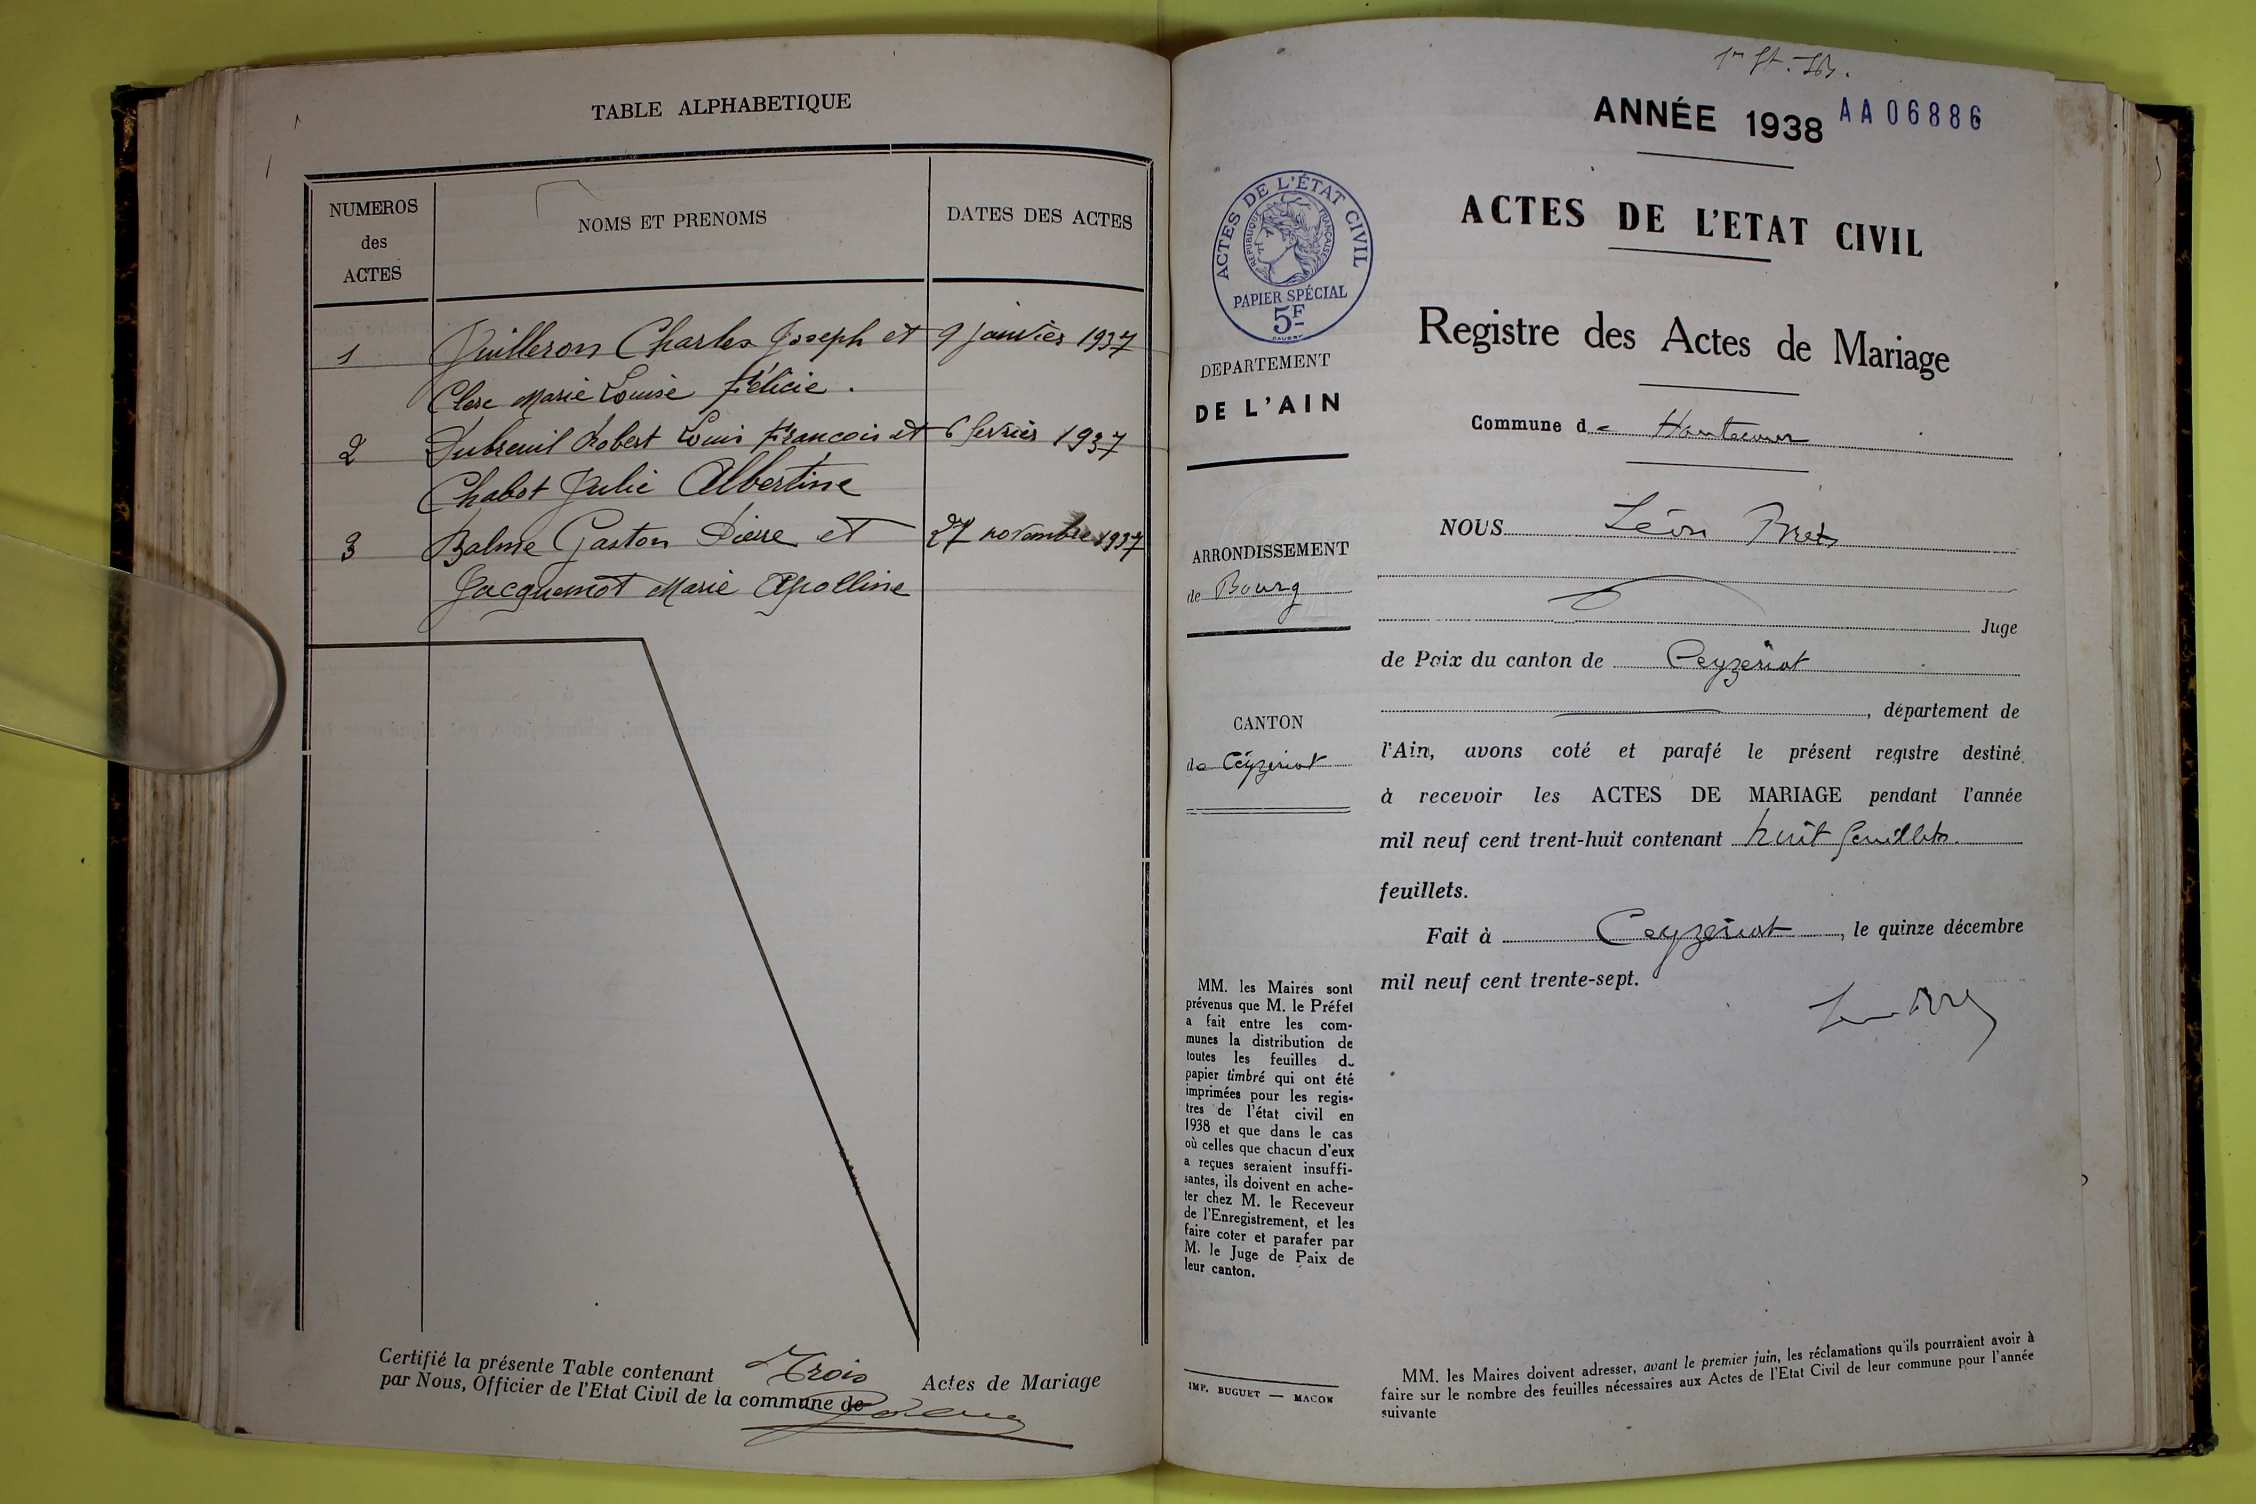 TABLE ALPHABETIQUE
NUMEROS
des
ACTES
NOMS ET PRENOMS
DATES DES ACTES
1 Vuilleron Charles Joseph et 9 janvier 1937
Clerc Marie Louise Félicie.
2 Dubreuil Robert Louis François et 6 fevrier 1937
Chabot Julie Albertine
3 Balme Gaston Pierre et 27 novembre 1937
Jacquemot Marie Apolline
Certifié la présente Table contenant Trois Actes de Mariage
par Nous, Officier de l'Etat Civil de la commune de
ANNÉE 1938 AA 06886
ACTES DE L'ÉTAT CIVIL
RÉPUBLIQUE FRANÇAISE
PAPIER SPÉCIAL
5F
DEPARTEMENT
DE L'AIN
ARRONDISSEMENT
de Bourg
CANTON
de Ceyzeriat
MM. les Maires sont
prévenus que M. le Préfet
a fait entre les com-
munes la distribution de
toutes les feuilles de
papier timbré qui ont été
imprimées pour les regis-
tres de l'état civil en
1938 et que dans le cas
où celles que chacun d'eux
a reçues seraient insuffi-
santes, ils doivent en ache-
ter chez M. le Receveur
de l'Enregistrement, et les
faire coter et parafer par
M. le Juge de Paix de
leur canton.
IMP. BUGUET — MACON
ACTES DE L'ETAT CIVIL
Registre des Actes de Mariage
Commune de Hautecour
NOUS Léon
Juge
de Paix du canton de Ceyzeriat
, département de
l'Ain, avons coté et parafé le présent registre destiné
à recevoir les ACTES DE MARIAGE pendant l'année
mil neuf cent trent-huit contenant huit feuillets.
feuillets.
Fait à Ceyzeriat, le quinze décembre
mil neuf cent trente-sept.
MM. les Maires doivent adresser, avant le premier juin, les réclamations qu'ils pourraient avoir à
faire sur le nombre des feuilles nécessaires aux Actes de l'Etat Civil de leur commune pour l'année
suivante